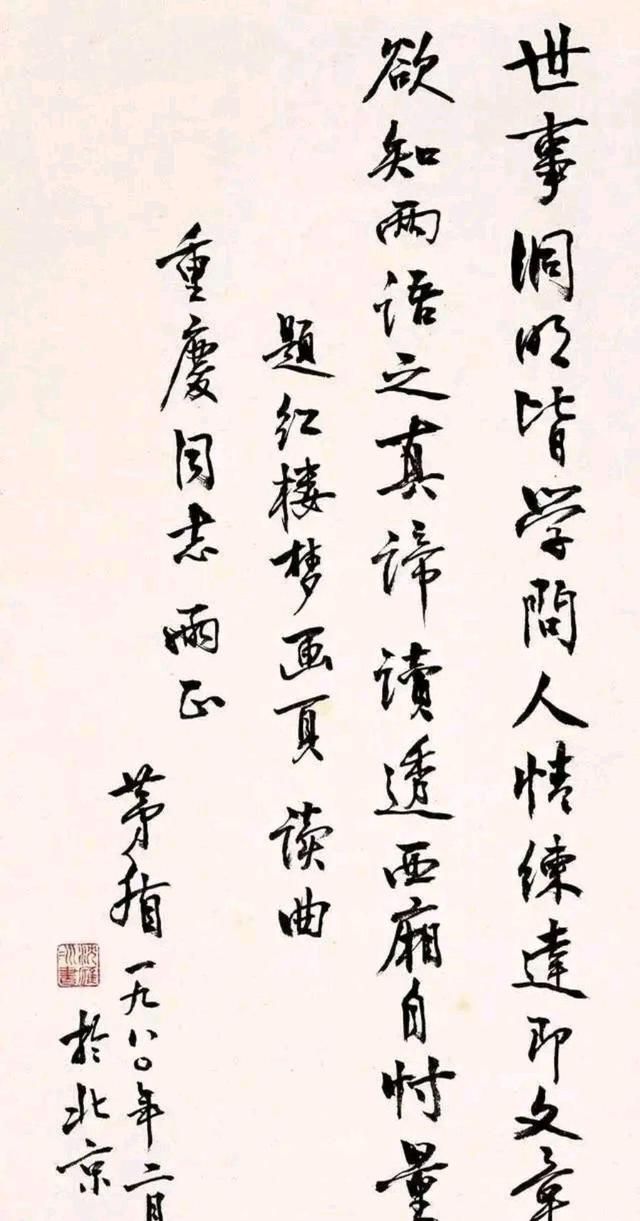 世事洞明皆学問人情練達即文章
欲知兩语之真谛讀透西廂自忖量
题红楼梦画頁 读曲
重慶同志兩正
茅盾一九八〇年二月
於北京